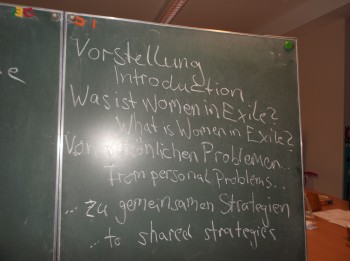 e
Vorstellung
Introduction
Was ist Women in Exile?
What is Women in Exile?
Von persönlichen Problemen..
From personal Problems..
... zu gemeinsamen Strategien
... to shared strategies